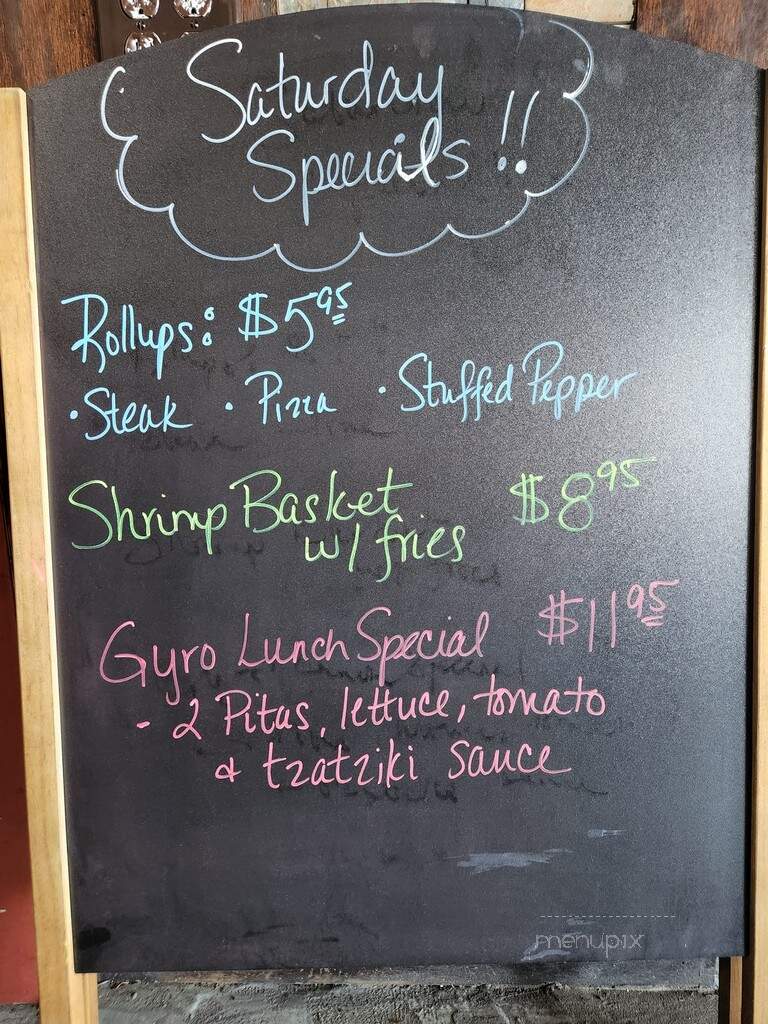 Saturday
Specials !!
Rollups: $5.95
· Steak · Pizza · Stuffed Pepper
Shrimp Basket $8.95
w/ fries
Gyro Lunch Special $11.95
- 2 Pitas, lettuce, tomato
& tzatziki sauce
menupix